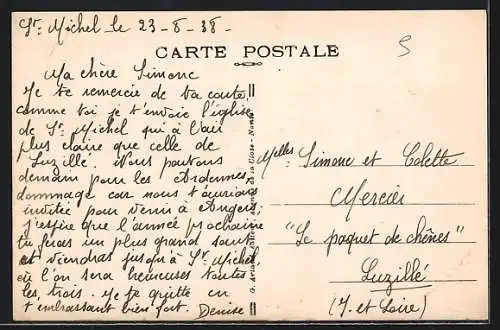 St. Michel le 23-8-38-
CARTE POSTALE
5
Ma chère Simone
Je te remercie de ta carte,
comme toi je t'envoie l'église
de St. Michel qui a l'air
plus claire que celle de
Luzillé. Nous partons
demain pour les Ardennes
dommage car nous t'aurions
invitée pour venir à Angers,
j'espère que l'année prochaine
tu feras un plus grand saut
et viendras jusqu'à St. Michel
où l'on sera heureuses toutes
les, trois. Je te quitte en
t'embrassant bien fort. Denise
Melles Simone et Colette
Mercier
"Le paquet de chênes"
Luzillé
(I. et Loire)